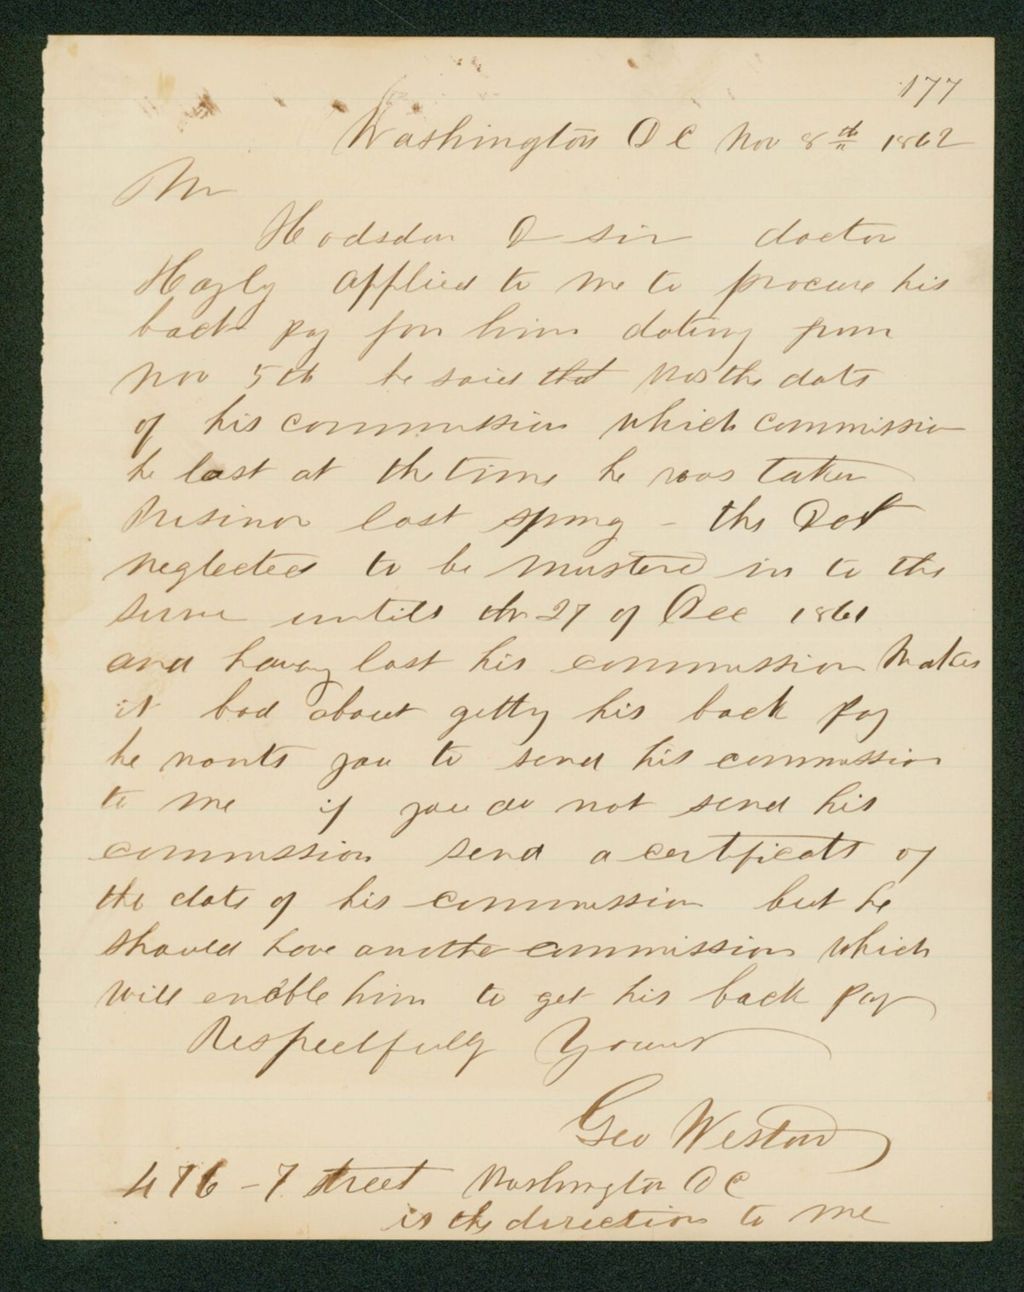 177
Washington D C Nov 8th 1862
Mr
Hodsdon D sir doctor
Hagly applied to me to procure his
back pay for him dating from
Nov 5th he said that was the date
of his commission which commission
he lost at the time he was taken
Prisinor last spring - the Doct
neglected to be mustered in to the
untill the 27 of Dec 1861
and having lost his commission makes
it bad about getting his back pay
he wants you to send his commission
to me if you do not send his
commission send a certificate of
the date of his commission but he
should have another commission which
will enable him to get his back pay
Respectfully Yours
Geo Weston
476 - 7 street Washington D C
is the direction to me